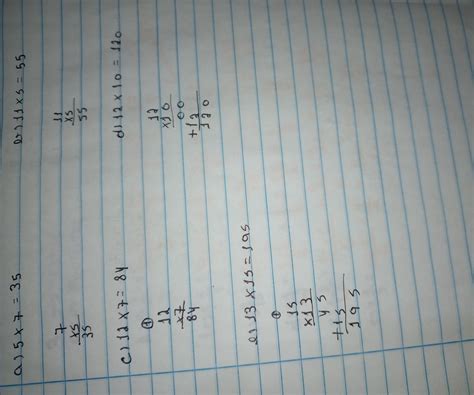 a) 5 x 7 = 35
7
x5
35
b) 11 x 5 = 55
11
x5
55
c) 12 x 7 = 84
①
12
x7
84
d) 12 x 10 = 120
12
x10
00
+12
120
e) 13 x 15 = 195
①
15
x13
45
+15
195